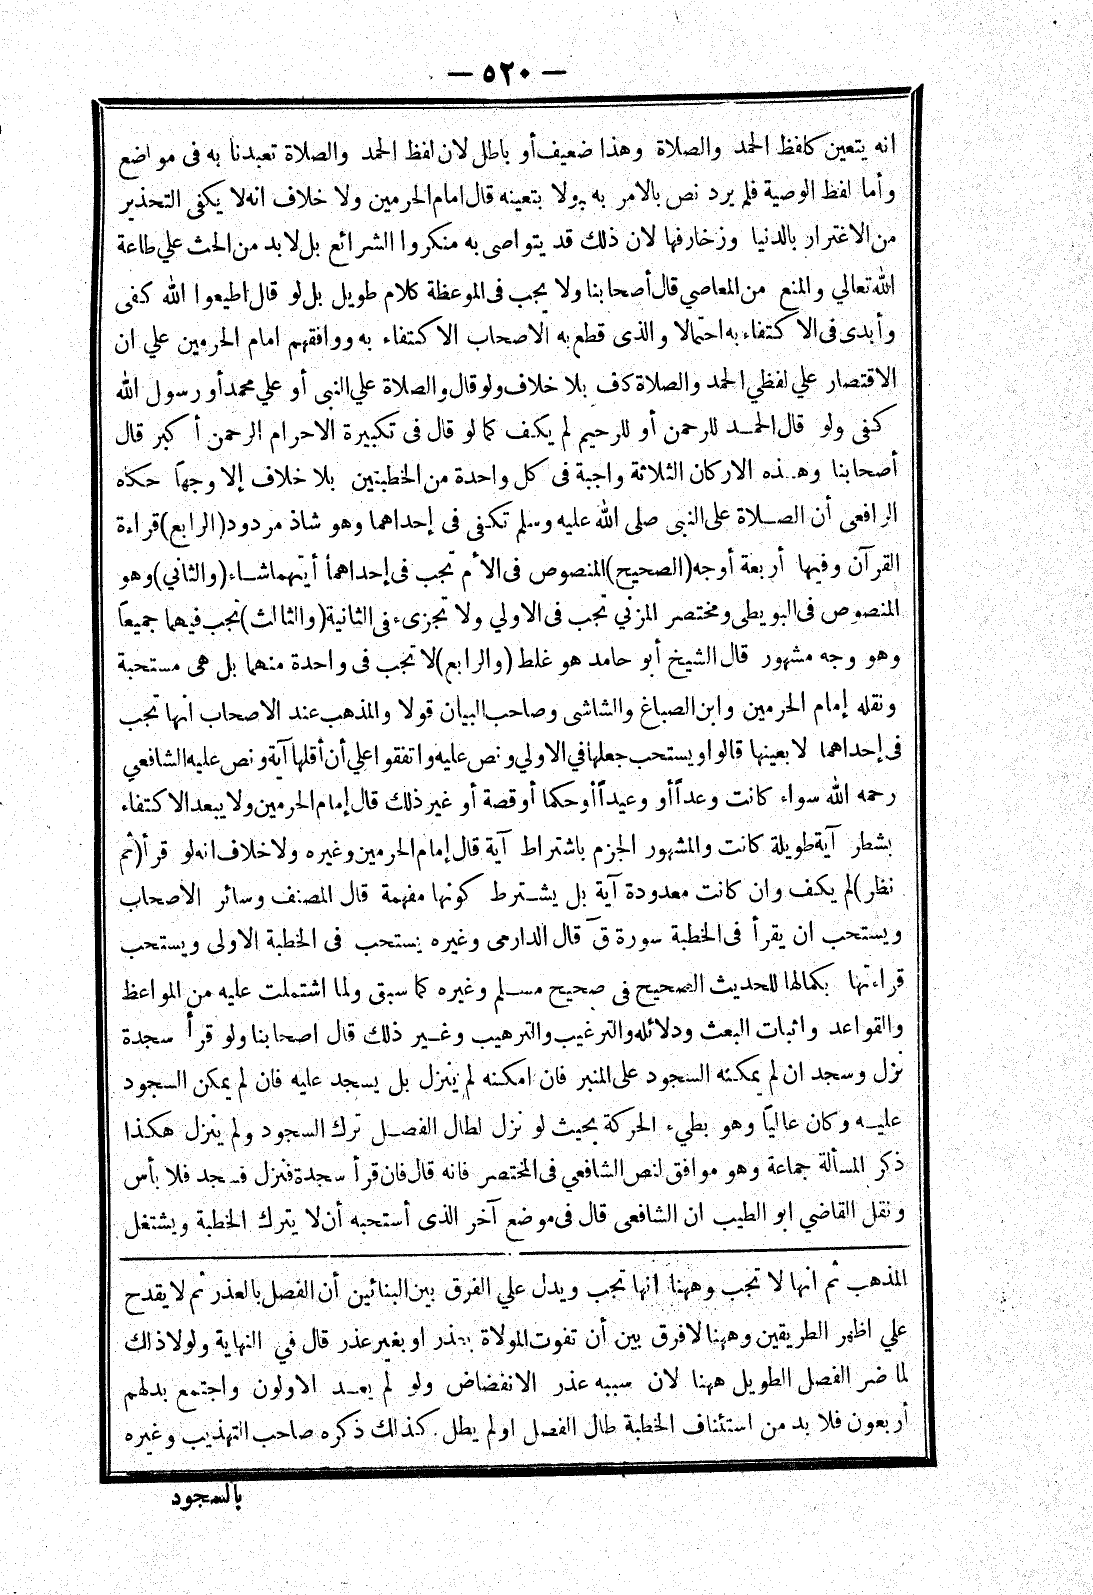 — ٥٢٠ —
انه يتعين كلفظ الحمد والصلاة وهذا ضعيف أو باطل لان لفظ الحمد والصلاة تعبدنا به فى مواضع
وأما لفظ الوصية فلم يرد نص بالامر به ولا بتعينه قال امام الحرمين ولا خلاف انه لا يكفى التحذير
من الاغترار بالدنيا وزخارفها لان ذلك قد يتواصى به منكروا الشرائع بل لابد من الحث علي طاعة
الله تعالي والمنع من المعاصي قال أصحابنا ولا يجب فى الموعظة كلام طويل بل لو قال اطيعوا الله كفى
وأبدى فى الاكتفاء به احتمالا والذى قطع به الاصحاب الاكتفاء به ووافقهم امام الحرمين علي ان
الاقتصار علي لفظي الحمد والصلاة كاف بلا خلاف ولو قال والصلاة علي النبى أو علي محمد أو رسول الله
كفى ولو قال الحمد للرحمن أو للرحيم لم يكف كما لو قال فى تكبيرة الاحرام الرحمن أكبر قال
أصحابنا وهذه الاركان الثلاثة واجبة فى كل واحدة من الخطبتين بلا خلاف إلا وجهاً حكاه
الرافعى أن الصلاة على النبى صلى الله عليه وسلم تكفى فى إحداهما وهو شاذ مردود (الرابع) قراءة
القرآن وفيها أربعة أوجه (الصحيح) المنصوص فى الأم تجب فى إحداهما أيتهما شاء (والثاني) وهو
المنصوص فى البويطى ومختصر المزني تجب فى الاولي ولا تجزىء فى الثانية (والثالث) تجب فيهما جميعاً
وهو وجه مشهور قال الشيخ أبو حامد هو غلط (والرابع) لا تجب فى واحدة منهما بل هى مستحبة
ونقله إمام الحرمين وابن الصباغ والشاشى وصاحب البيان قولا والمذهب عند الاصحاب انها تجب
فى إحداهما لا بعينها قالوا ويستحب جعلها في الاولي ونص عليه واتفقوا علي أن أقلها آية ونص عليه الشافعي
رحمه الله سواء كانت وعداً أو وعيداً أو حكما أو قصة أو غير ذلك قال إمام الحرمين ولا يبعد الاكتفاء
بشطر آية طويلة كانت والمشهور الجزم باشتراط آية قال إمام الحرمين وغيره ولا خلاف انه لو قرأ (ثم
نظر) لم يكف وان كانت معدودة آية بل يشترط كونها مفهمة قال المصنف وسائر الاصحاب
ويستحب ان يقرأ فى الخطبة سورة قٓ قال الدارمى وغيره يستحب فى الخطبة الاولى ويستحب
قراءتها بكمالها للحديث الصحيح فى صحيح مسلم وغيره كما سبق ولما اشتملت عليه من المواعظ
والقواعد واثبات البعث ودلائله والترغيب والترهيب وغير ذلك قال اصحابنا ولو قرأ سجدة
نزل وسجد ان لم يمكنه السجود على المنبر فان امكنه لم ينزل بل يسجد عليه فان لم يمكن السجود
عليه وكان عالياً وهو بطيء الحركة بحيث لو نزل لطال الفصل ترك السجود ولم ينزل هكذا
ذكر المسألة جماعة وهو موافق لنص الشافعي فى المختصر فانه قال فان قرأ سجدة فنزل فسجد فلا بأس
ونقل القاضي ابو الطيب ان الشافعى قال فى موضع آخر الذى أستحبه أن لا يترك الخطبة ويشتغل
المذهب ثم انها لا تجب وههنا أنها تجب ويدل علي الفرق بين البنائين أن الفصل بالعذر ثم لا يقدح
علي اظهر الطريقين وههنا لا فرق بين أن تفوت المولاة بعذر او بغير عذر قال في النهاية ولولا ذاك
لما ضر الفصل الطويل ههنا لان سببه عذر الانفضاض ولو لم يعد الاولون واجتمع بدلهم
أربعون فلا بد من استئناف الخطبة طال الفصل او لم يطل كذلك ذكره صاحب التهذيب وغيره
بالسجود